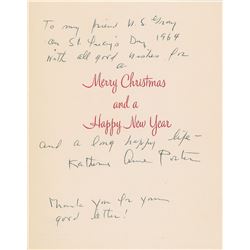 To my friend W.S. Gray
on St. Lucy's Day, 1964
With all good wishes for
a
Merry Christmas
and a
Happy New Year
and a long happy life—
Katherine Anne Porter
Thank you for your
good letter!